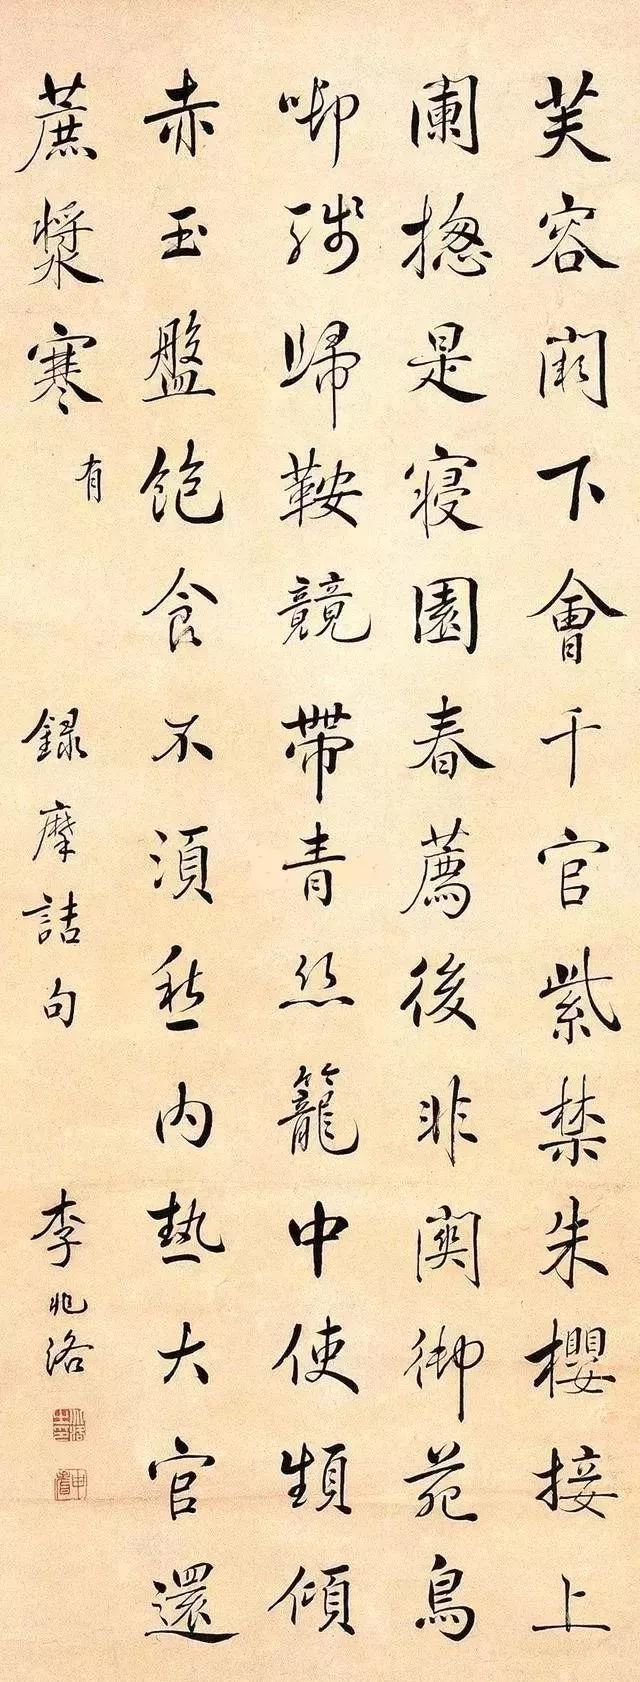 芙容闕下會千官紫禁朱櫻接上
闌摠是寢園春薦後非關御苑鳥
啣殘歸鞍競帶青絲籠中使頻傾
赤玉盤飽食不須愁内熱大官還
蔗漿寒 有 録摩詰句 李兆洛
申耆